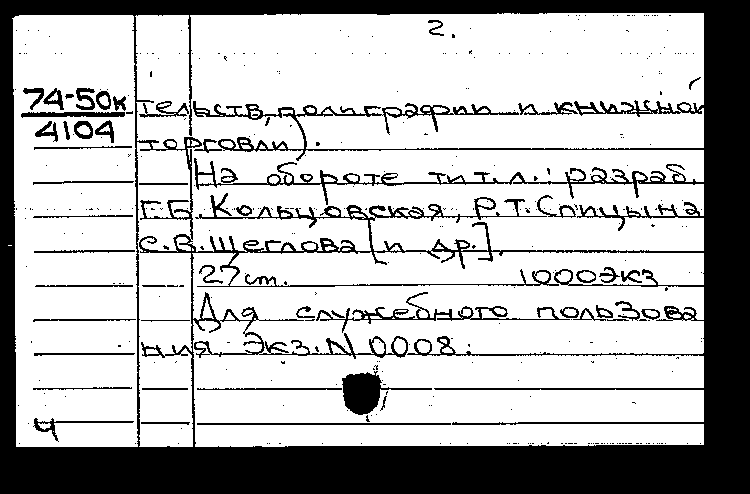 2.
74-50к тельств, полиграфии и книжной
4104
торговли).
На обороте тит.л.: разраб.
Г.Б. Кольцовская, Р.Т. Спицына
С.В. Щеглова [и др.].
27 cm. 1000 экз.
Для служебного пользова
ния. Экз. N 0008.
ч